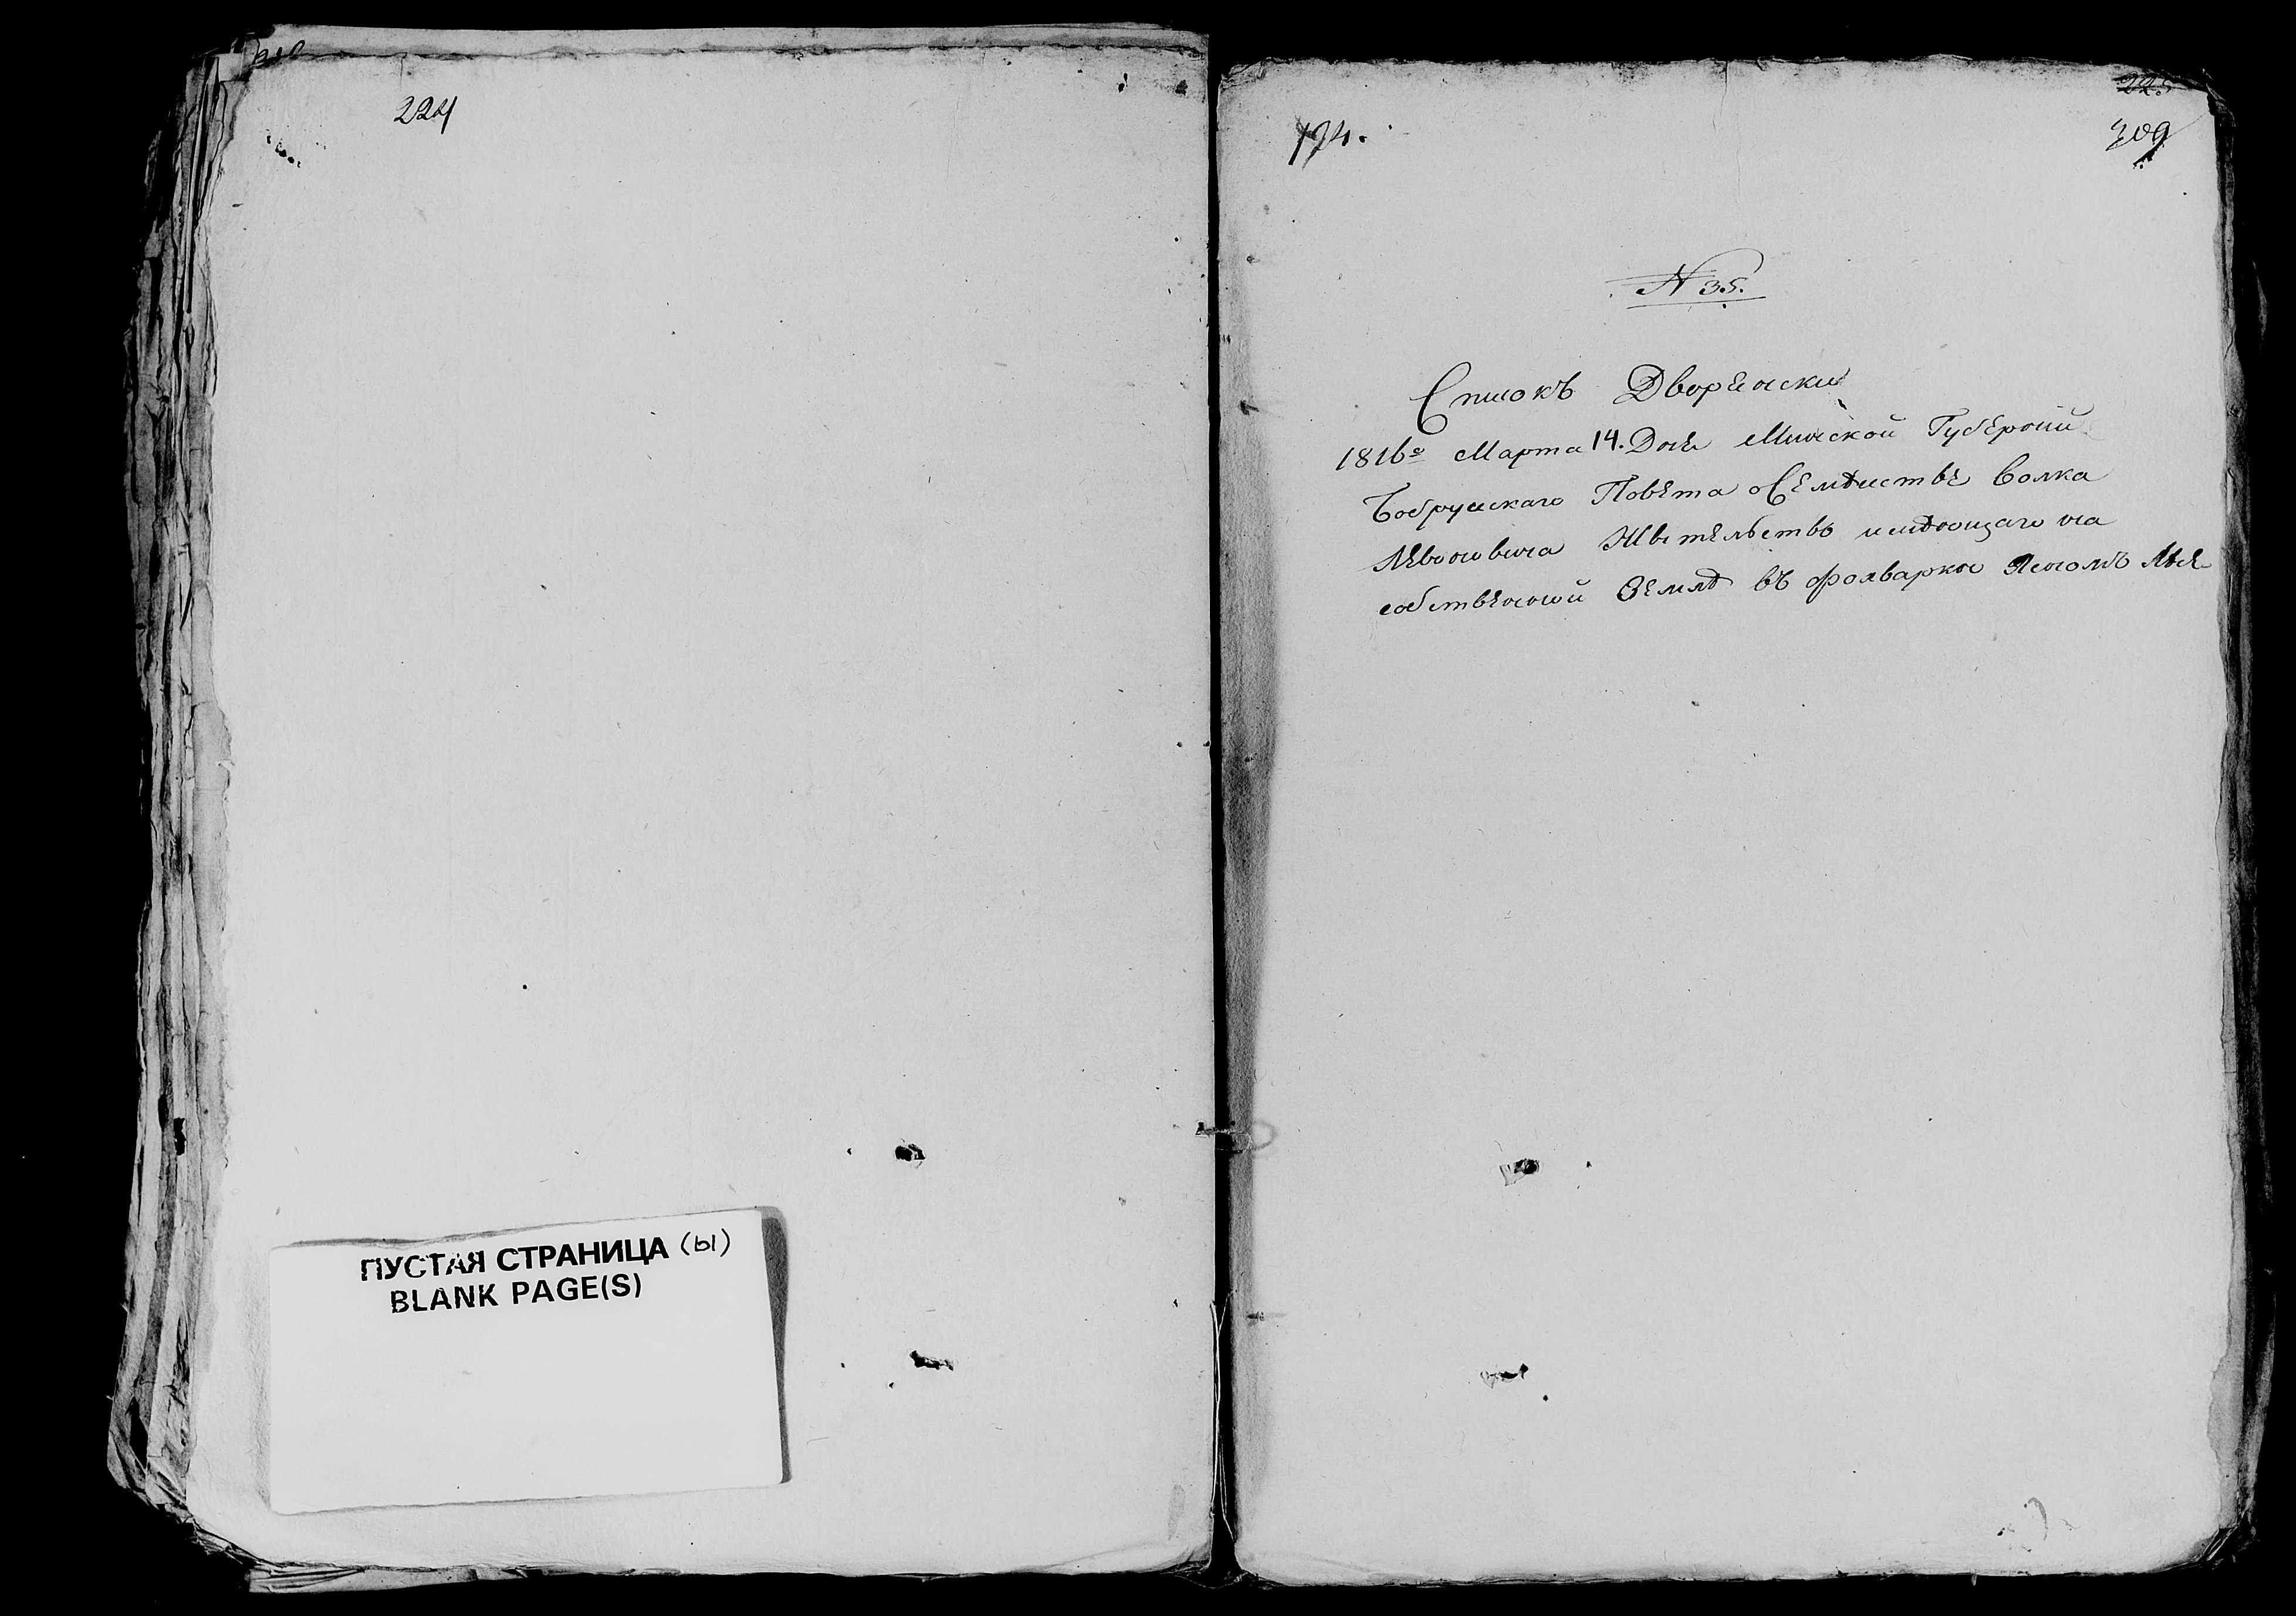 224
ПУСТАЯ СТРАНИЦА (ы)
BLANK PAGE(S)
225
174.
309
N 35.
Списокъ Дворенски
1816го Марта 14. Дне Минской Губернии
Бобруискаго Повета о Семѣистве Волка
Левоновича Жительство имѣющаго на
собственной Землѣ въ фолварке Ясномъ Лесе